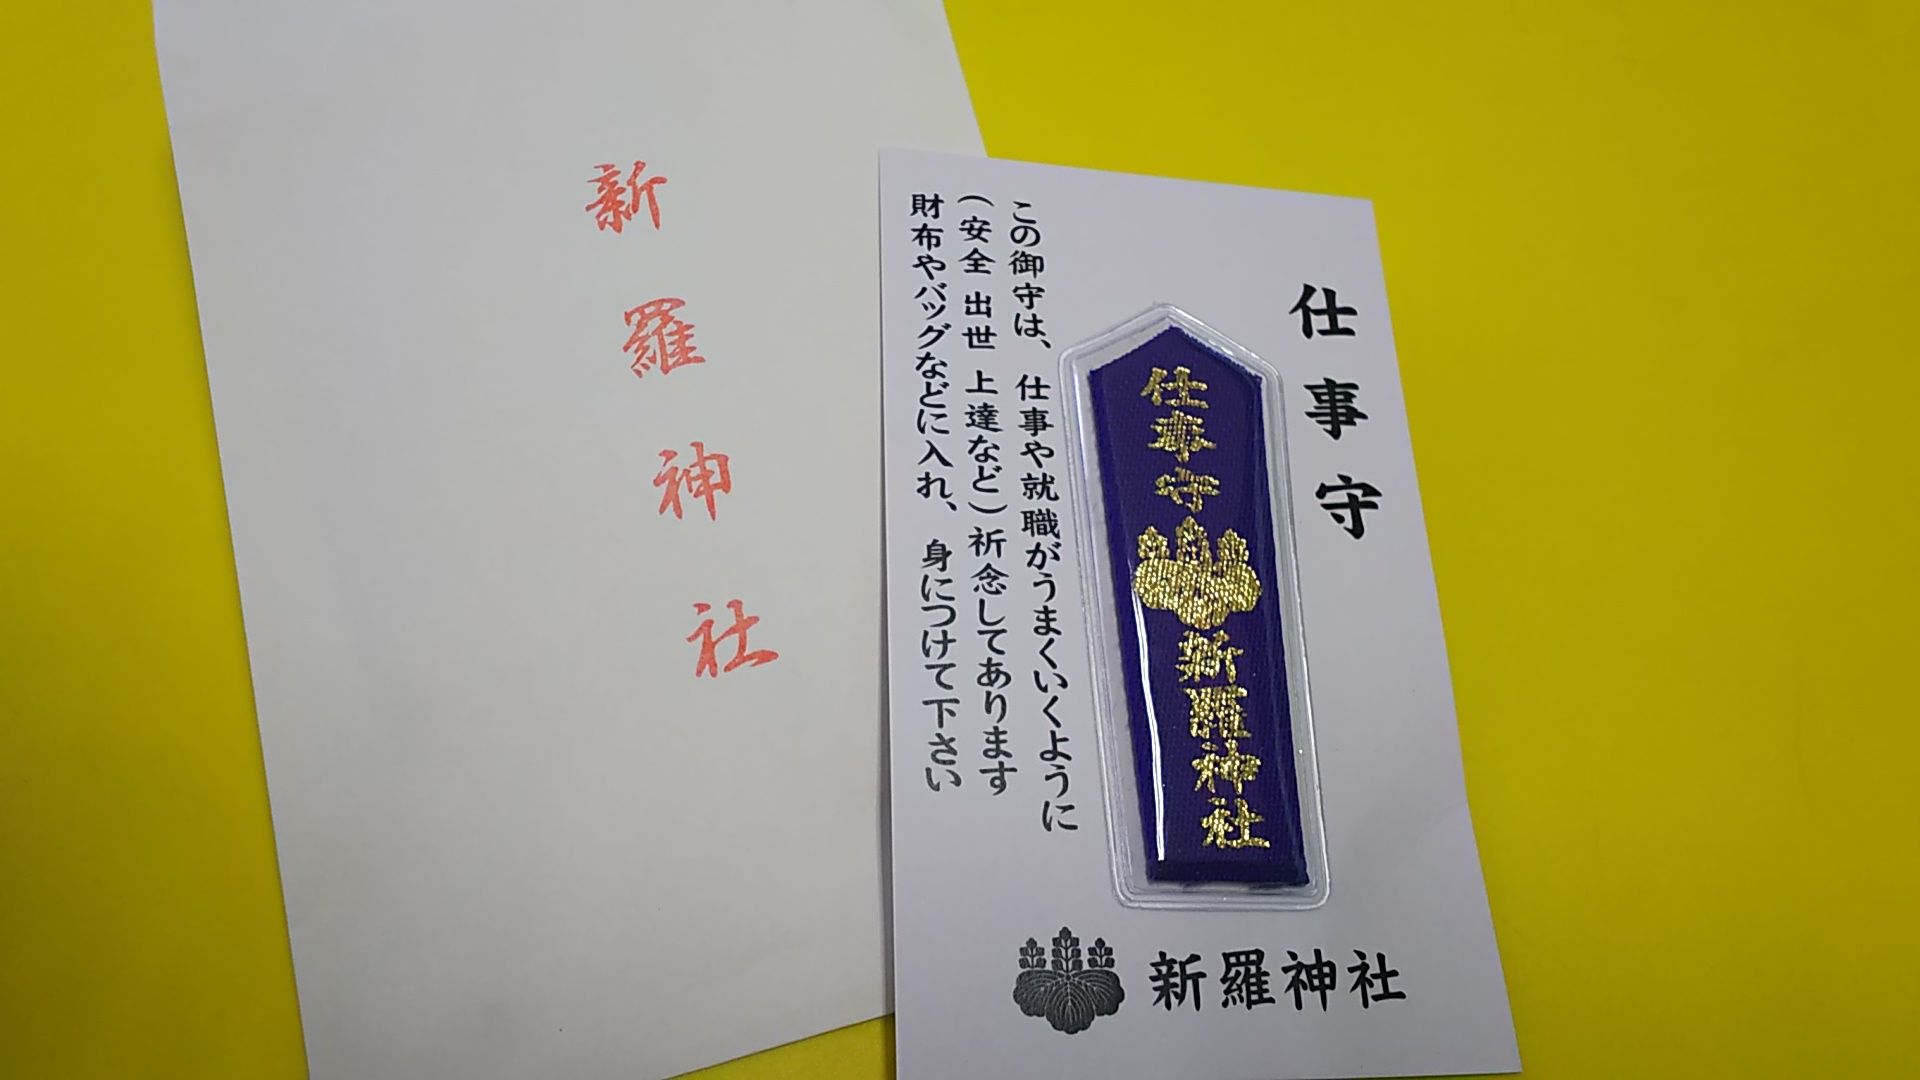 新羅神社
仕事守
仕事守
新羅神社
この御守は、仕事や就職がうまくいくように
(安全 出世 上達など)祈念してあります
財布やバッグなどに入れ、身につけて下さい
新羅神社